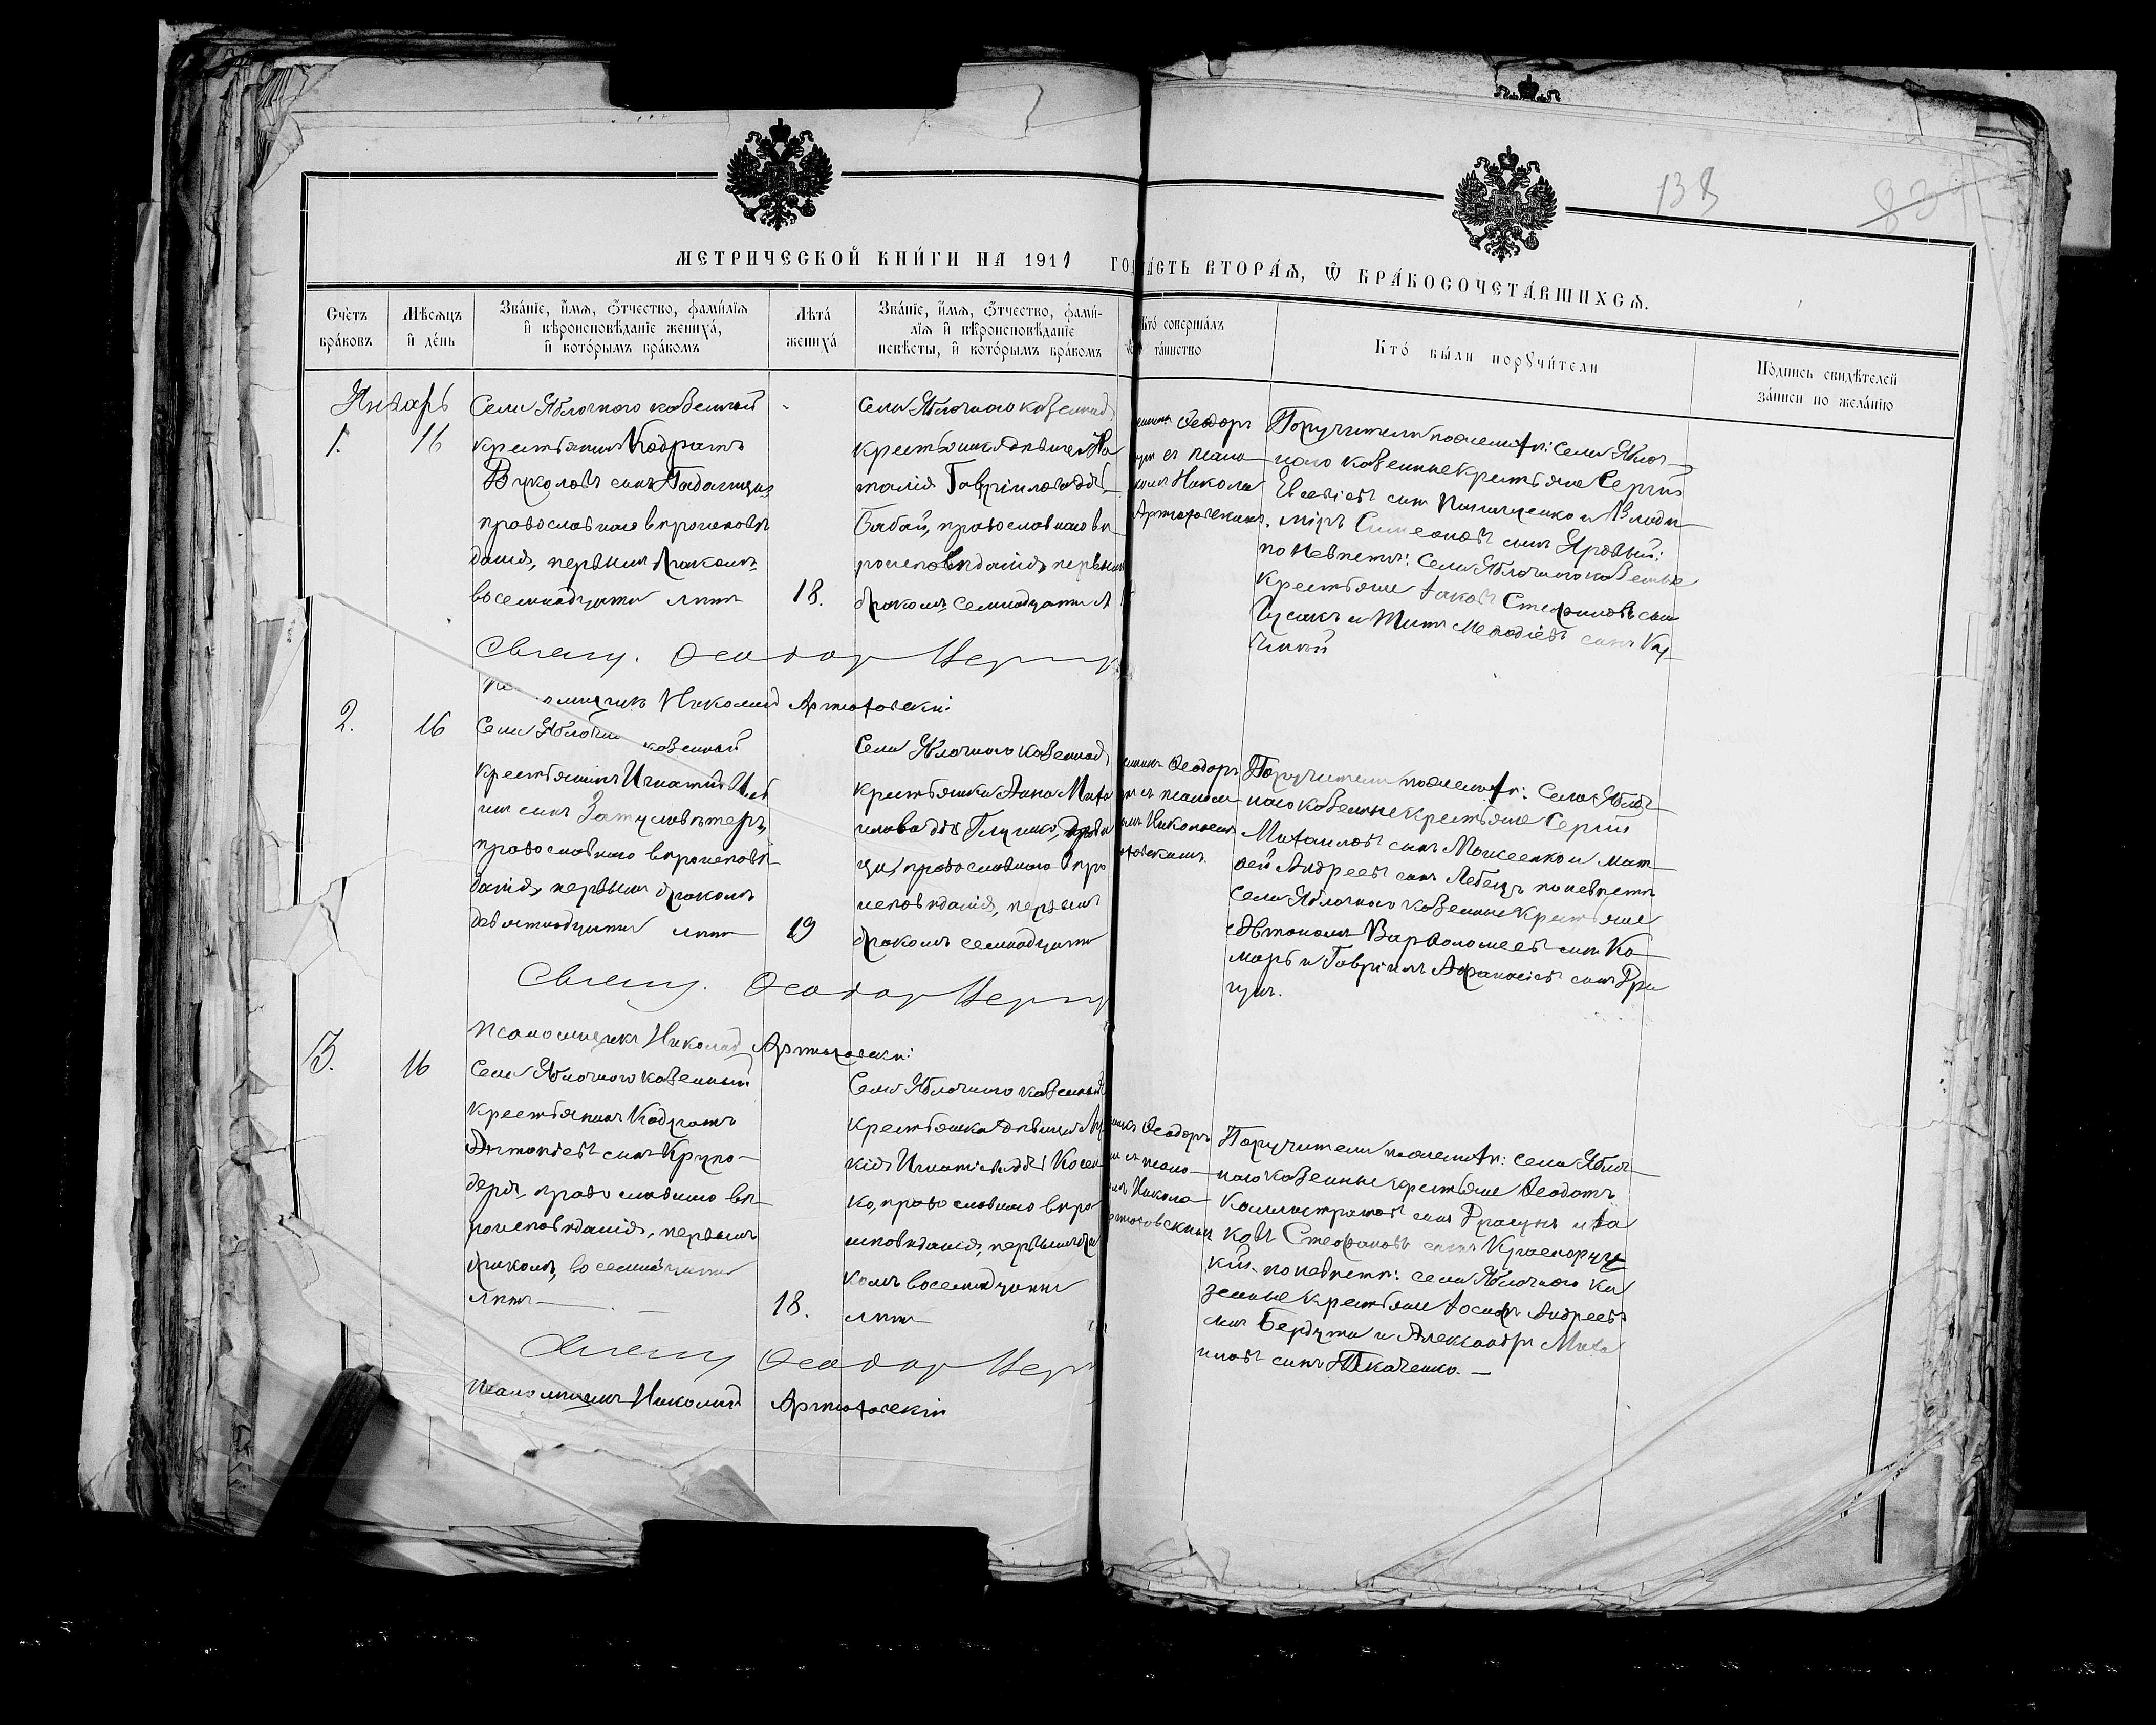 138
83
МЕТРИЧЕСКОЙ КНИГИ НА 1911
ЧАСТЬ ВТОРАЯ, Ѿ БРАКОСОЧЕТАВШИХСЯ.
Счетъ браковъ
Мѣсяцъ и день
Званіе, имя, ѿчество, фамилія
и вѣроисповѣданіе жениха,
и которымъ бракомъ
Лѣта жениха
Званіе, имя, ѿчество, фами-
лія и вѣроисповѣданіе
невѣсты, и которымъ бракомъ
Кто совершалъ
таинство
Кто были поручители
Подпись свидѣтелей
записи по желанію
Январь
1.
16
Села Яблочного казенный
крестьянинъ Кодратъ
сынъ
православнаго вѣроисповѣ
данія, первымъ бракомъ
восемнадцати лѣтъ
18.
Села Яблочного казенная
крестьянка дѣвица На
талія Гавріилова
Бабай, православнаго вѣ
роисповѣданія, первымъ
бракомъ, семнадцати
Феодоръ
съ псало
Никола
Артюховскимъ.
Поручители по женихѣ: села Яблоч-
наго казенные крестьяне Сергій
Евсевіевъ сынъ и Влади
міръ Симеоновъ сынъ Яровый:
по невѣстѣ: села Яблочного казенные
крестьяне Іаковъ Стефановъ сынъ
Гусакъ и Титъ Мефодіевъ сынъ
Свящ. Феодоръ
Николай Артюховскій
2.
16
Села казенный
крестьянинъ Игнатій
сынъ
православнаго вѣроисповѣ
данія, первымъ бракомъ
девятнадцати лѣтъ
19
Села Яблочного казенная
крестьянка Анна Миха
илова Глушко,
православнаго вѣро
исповѣданія, первымъ
бракомъ семнадцати
Феодоръ
съ псалом
Николаемъ
Поручители по женихѣ: села Яблоч-
наго казенные крестьяне Сергій
Михаиловъ сынъ Моисеенко и Мат-
фей Андреевъ сынъ Лебедь по невѣстѣ
села Яблочного казенные крестьяне
Автономъ Варфоломеевъ сынъ Ко
марь и Гавріилъ Афанасіевъ сынъ
Свящ. Феодоръ
Псаломщикъ Николай Артюховскій
3.
16
Села Яблочного казенный
крестьянинъ Кодратъ
Антоніевъ сынъ Крупо-
деря, православнаго вѣ-
роисповѣданія, первымъ
бракомъ, восемнадцати
лѣтъ
18.
Села Яблочного казенная
крестьянка дѣвица
кія Игнатіева Косен
ко, православнаго вѣро
исповѣданія, первымъ бра
комъ восемнадцати
лѣтъ
Феодоръ
псало
Никола
Поручители по женихѣ: села Яблоч-
наго казенные крестьяне Феодотъ
Каллистратовъ сынъ Драгунъ и Іа
ковъ Стефановъ сынъ Красноруц
кій. по невѣстѣ: села Яблочного ка
зенные крестьяне Іосифъ Андреевъ
сынъ Бердута и Александръ Миха
иловъ сынъ Ткаченко. —
Свящ. Феодоръ
Псаломщикъ Николай Артюховскій